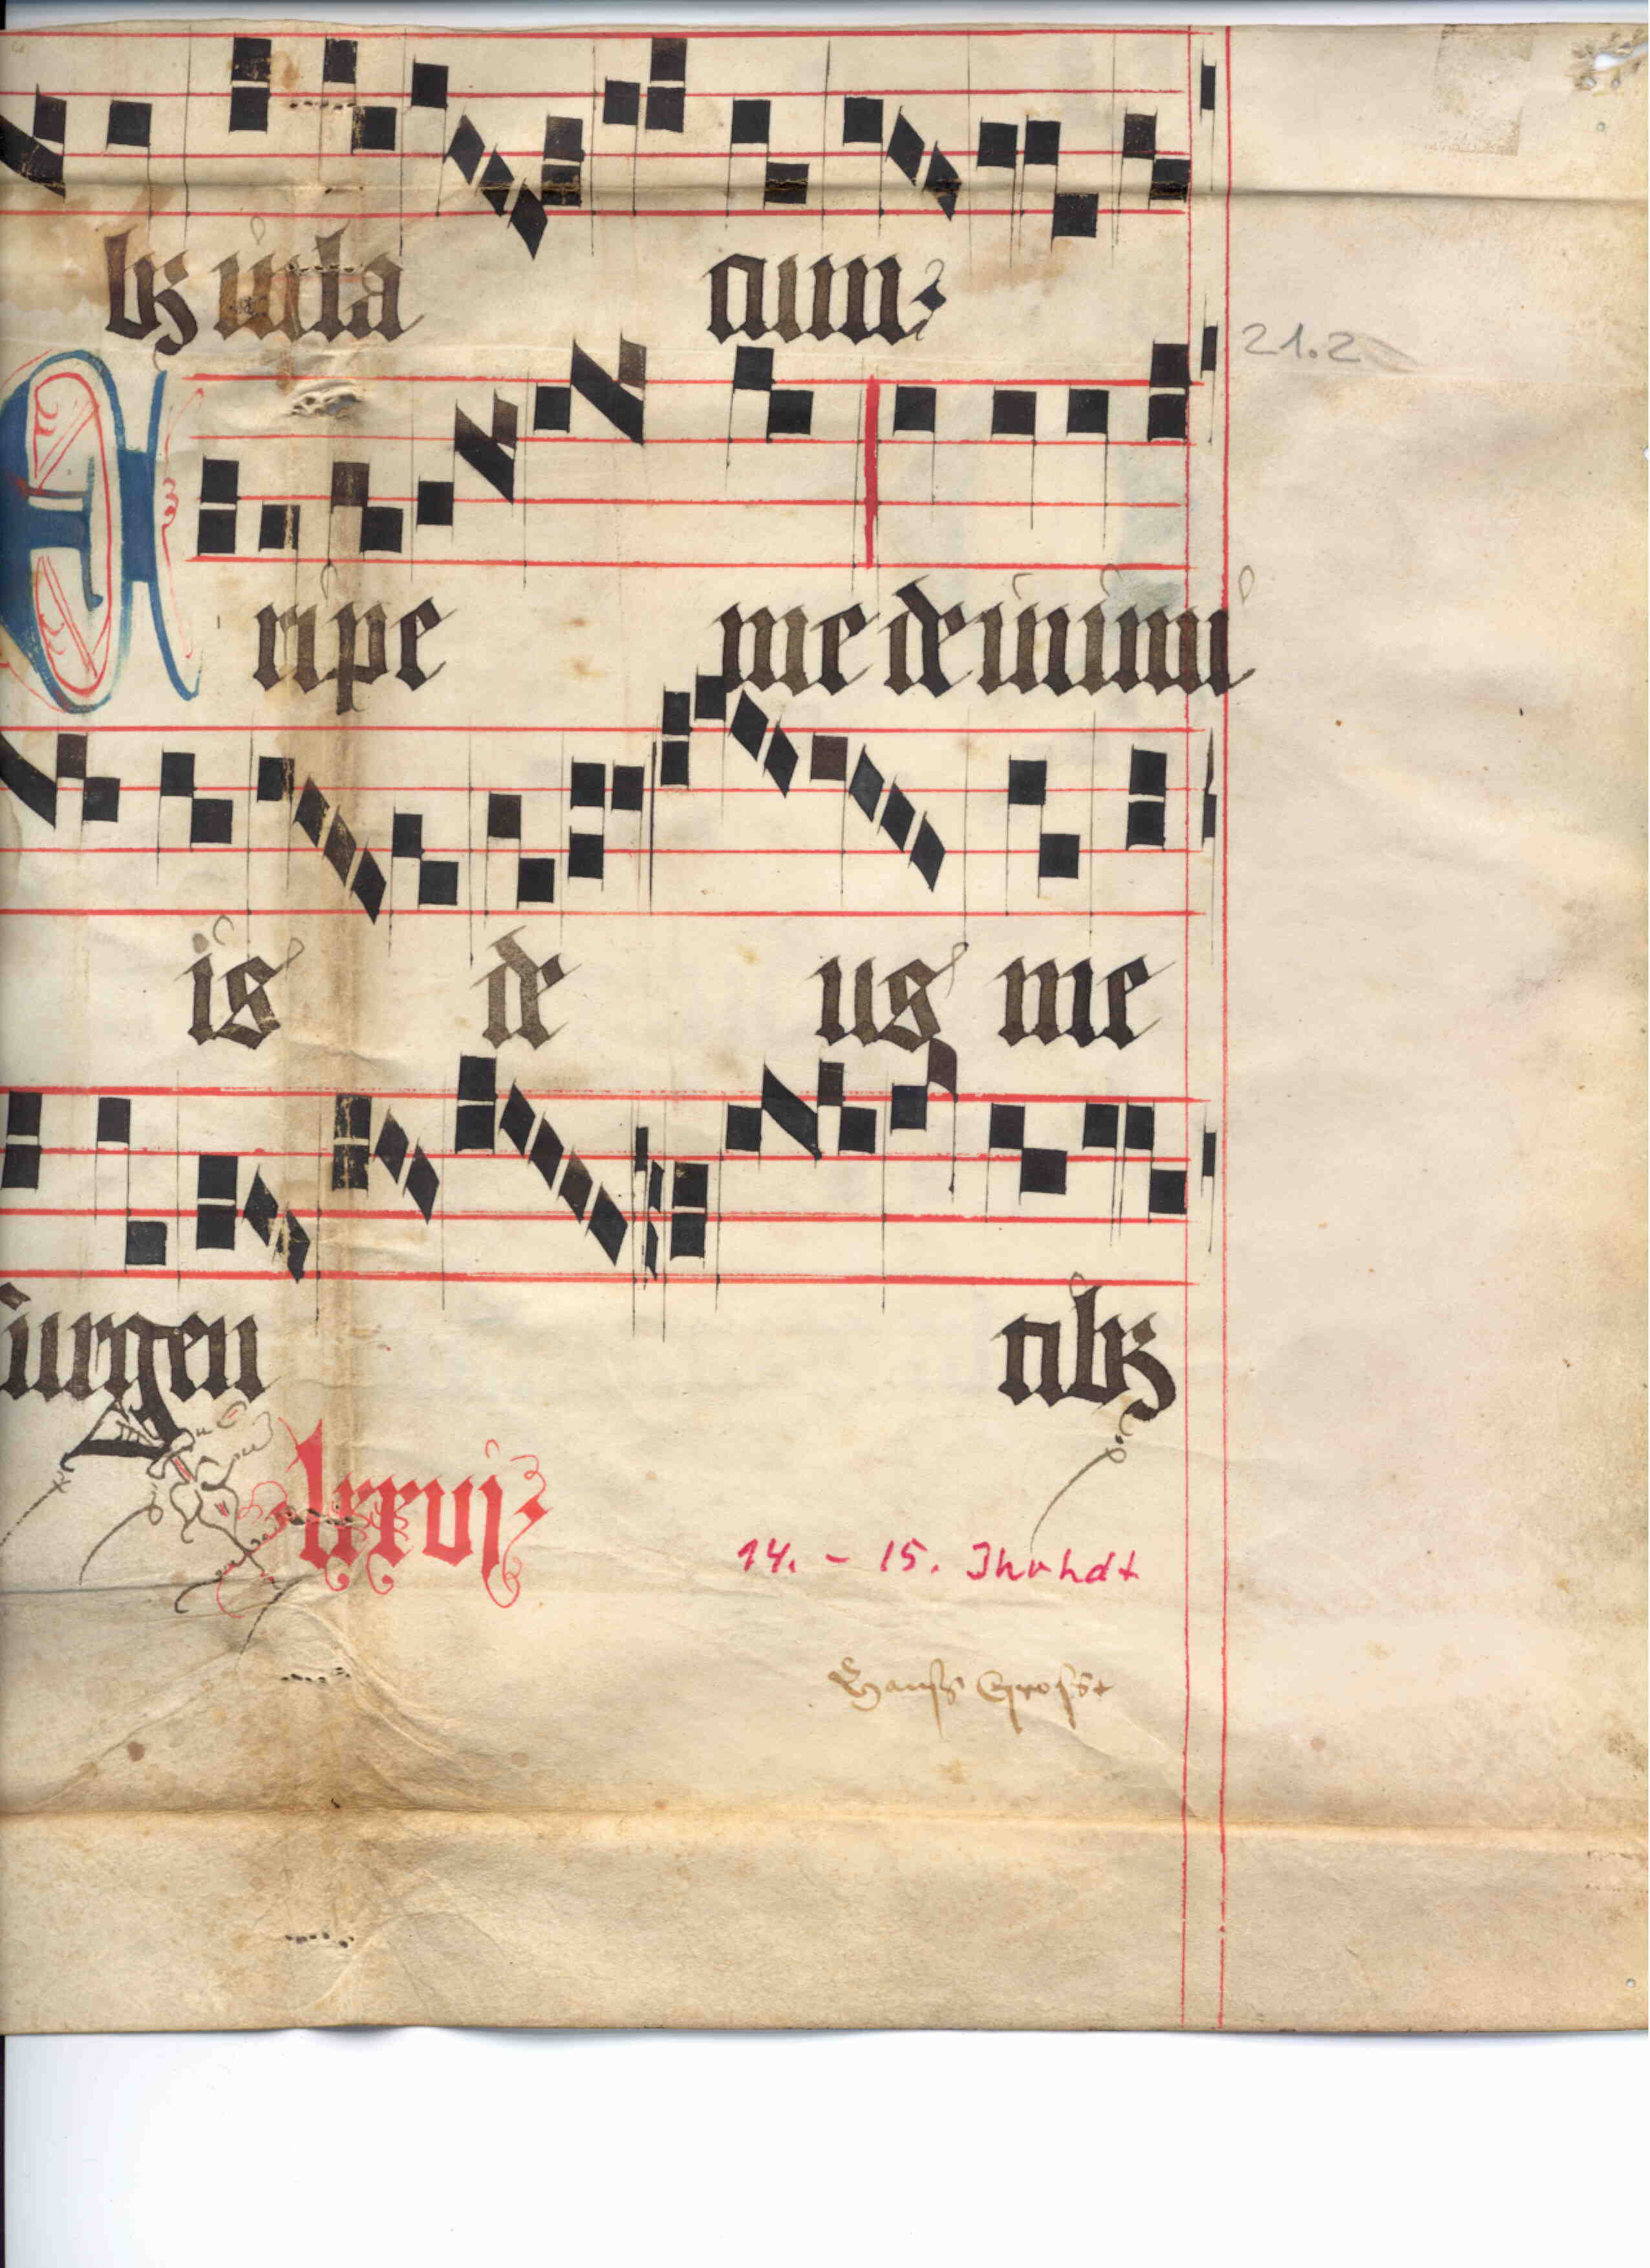 bꝫ iusta
21.2
E ripe me de inimi
is de us me
surgen tibꝫ
lxxvj
14. - 15. Jhrhdt
Hanß Groß